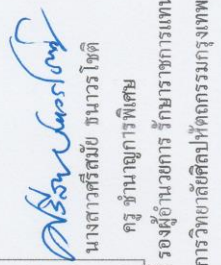 นางสาวศรีสมัย ธนาวรโชติ
ครู ชำนาญการพิเศษ
รองผู้อำนวยการ รักษาราชการแทน
การวิทยาลัยศิลปหัตถกรรมกรุงเทพ